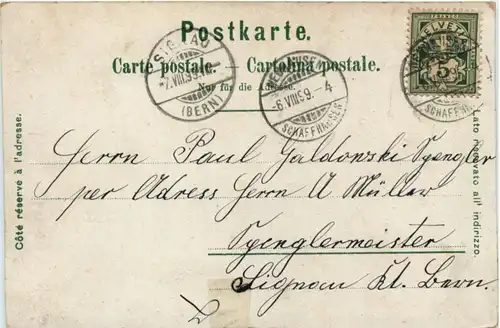 Postkarte.
Carte postale. — Cartolina postale.
Nur für die Adresse.
SIGNAU
7.VIII.99
(BERN)
6.VIII.99.-4
SCHAFFHAUSEN
HELVETIA
5
SCHAFFH
Côté réservé à l'adresse.
Lato riservato all' indirizzo.
Herrn Paul Galdowski Spengler
per Adress Herrn A Müller
Spenglermeister
Signau Kt. Bern.